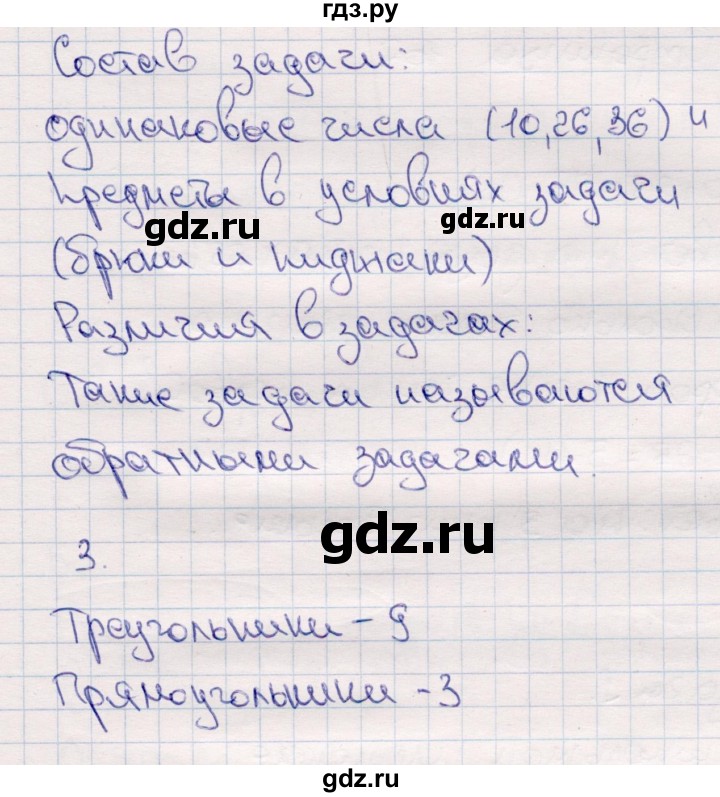 гдз.ру
Состав задачи:
одинаковые числа (10,26,36) и
предметы в условиях задачи
gdz.ru gdz.ru
(брюки и пиджаки)
Различия в задачах:
Такие задачи называются
обратными задачами.
gdz.ru
3.
Треугольники - 9
Прямоугольники - 3
gdz.ru